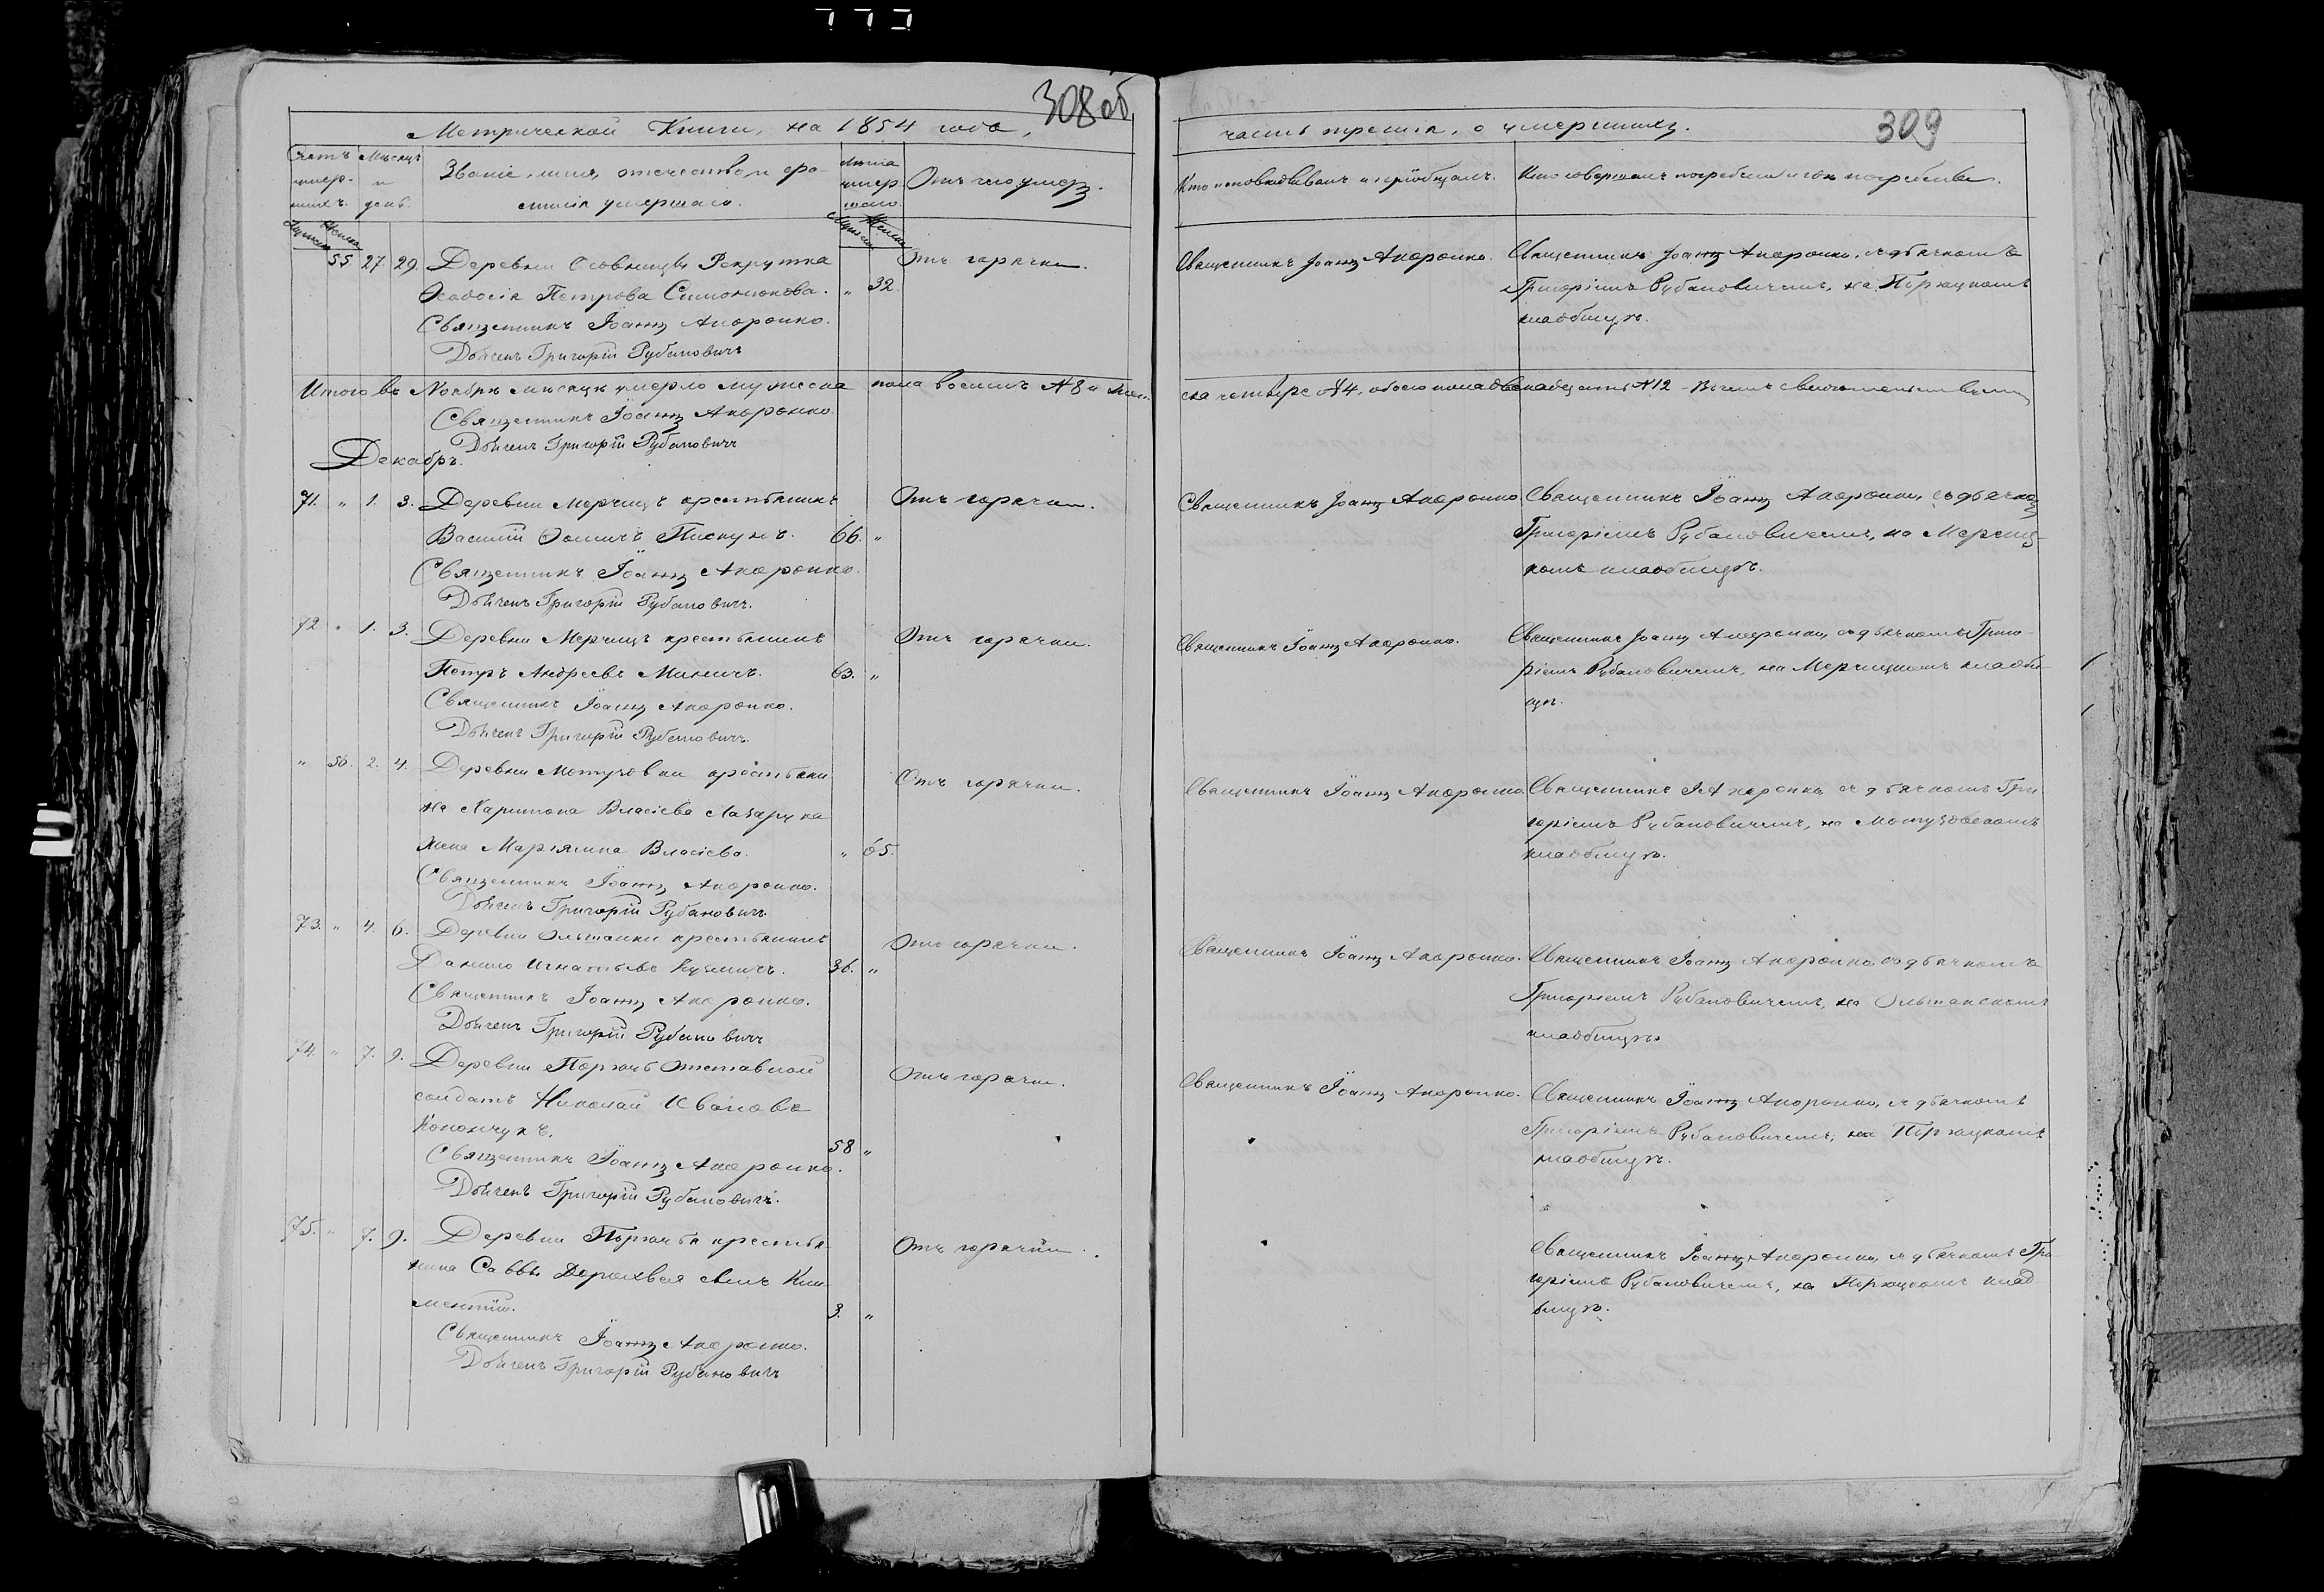 308 об
Метрической Книги, на 1854 года,
Счетъ умер-шихъ.
Мѣсяцъ и день.
Званіе, имя, отечество и фа-
милія умершаго.
Лѣта умер-шаго.
Отъ чего умеръ.
Мужеска
Женска
Мужеска
Женска
55. 27. 29. Деревни Осовницы Рекрутка Отъ горячки.
Ѳеодосія Петрова Симонюкова. " 32.
Священникъ Іоаннъ Андронко.
Дьячекъ Григорій Рубановичъ
Итого въ Ноябрѣ мѣсяцѣ умерло мужеска пола восемь №8 и жен-
Священникъ Іоаннъ Андронко.
Дьячекъ Григорій Рубановичъ
Декабрь.
71. " 1. 3. Деревни Мерчицъ крестьянинъ Отъ горячки.
Василій Ѳоминъ Пискунъ. 66. "
Священникъ Іоаннъ Андронко.
Дьячекъ Григорій Рубановичъ.
72 " 1. 3. Деревни Мерчицъ крестьянинъ Отъ горячки.
Петръ Андреевъ Миничъ. 63. "
Священникъ Іоаннъ Андронко.
Дьячекъ Григорій Рубановичъ.
" 56. 2. 4. Деревни Мотузовки крестьяни Отъ горячки.
на Харитона Власіева Лазарука
жена Маріянна Власіева. " 65.
Священникъ Іоаннъ Андронко.
Дьячекъ Григорій Рубановичъ.
73. " 4. 6. Деревни Ольшанки крестьянинъ Отъ горячки.
Данило Игнатьевъ Кузмичъ. 36. "
Священникъ Іоаннъ Андронко.
Дьячекъ Григорій Рубановичъ
74. " 7. 9. Деревни Порѣчья отставной Отъ горячки.
солдатъ Николай Ивановъ
Конончукъ. 58 "
Священникъ Іоаннъ Андронко.
Дьячекъ Григорій Рубановичъ.
75. " 7. 9. Деревни Порѣчья крестья Отъ горячки.
нина Саввы сынъ Кли
ментій. 3. "
Священникъ Іоаннъ Андронко.
Дьячекъ Григорій Рубановичъ
309
часть третія, о умершихъ.
Кто исповѣдывалъ и пріобщалъ.
Кто совершалъ погребеніе и гдѣ погребены.
Священникъ Іоаннъ Андронко. Священникъ Іоаннъ Андронко, съ дьячкомъ
Григоріемъ Рубановичемъ, на Порѣцкомъ
кладбищѣ.
ска четыре №4, обоего пола двенадцать №12 - Въ чемъ свидетельствуемъ
Священникъ Іоаннъ Андронко. Священникъ Іоаннъ Андронко, съ дьячкомъ
Григоріемъ Рубановичемъ, на Мерчиц-
комъ кладбищѣ.
Священникъ Іоаннъ Андронко. Священникъ Іоаннъ Андронко, съ дьячкомъ Григо-
ріемъ Рубановичемъ, на Мерчицкомъ кладби-
щѣ.
Священникъ Іоаннъ Андронко. Священникъ І. Андронко съ дьячкомъ Гри
горіемъ Рубановичемъ, на Мотузовскомъ
кладбищѣ.
Священникъ Іоаннъ Андронко. Священникъ Іоаннъ Андронко, съ дьячкомъ
Григоріемъ Рубановичемъ, на Ольшанскомъ
кладбищѣ.
Священникъ Іоаннъ Андронко. Священникъ Іоаннъ Андронко, съ дьячкомъ
Григоріемъ Рубановичемъ, на Порѣцкомъ
кладбищѣ.
Священникъ Іоаннъ Андронко, съ дьячкомъ Гри-
горіемъ Рубановичемъ, на Порѣцкомъ клад
бищѣ.